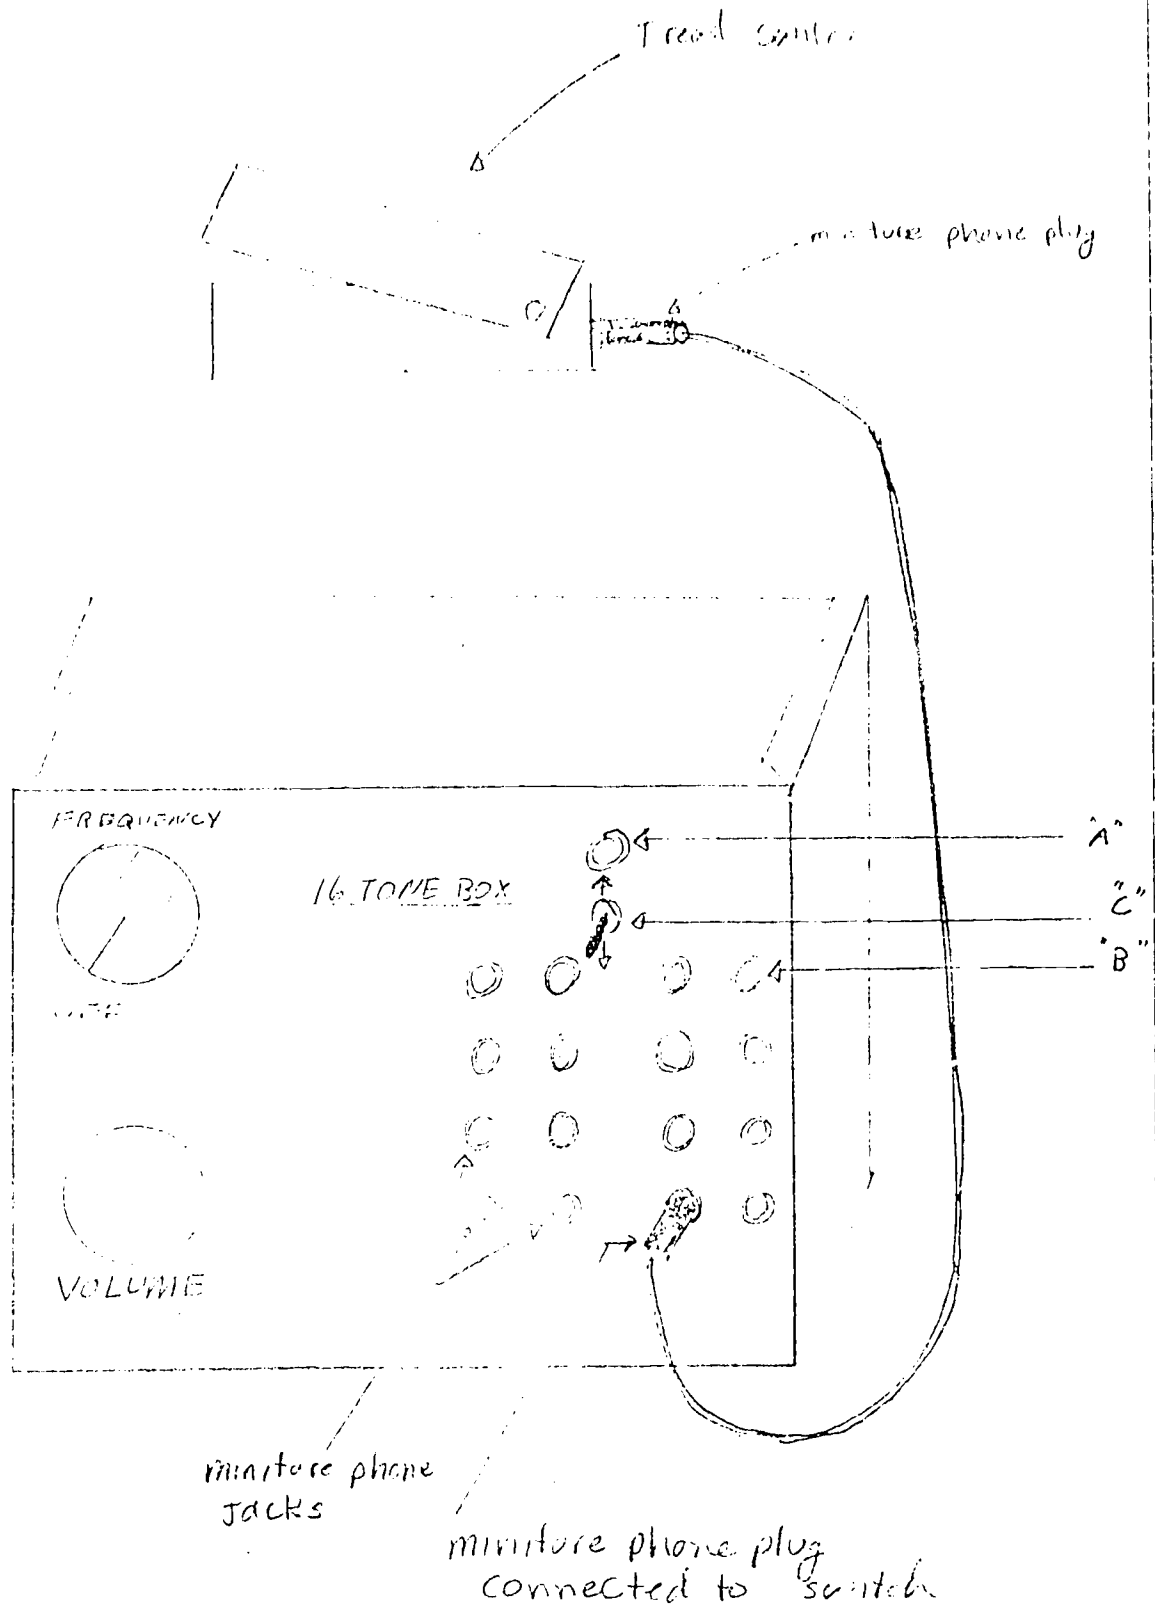 Tread
miniture phone plug
FREQUENCY
"A"
16 TONE BOX
"C"
"B"
VOLUME
miniture phone
Jacks
miniture phone plug
connected to switch